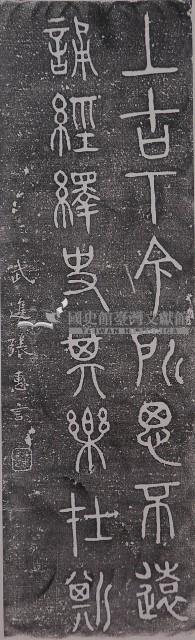 上古下今所思不遠
誦經繹史其樂在
武進張惠言
國史館臺灣文獻館